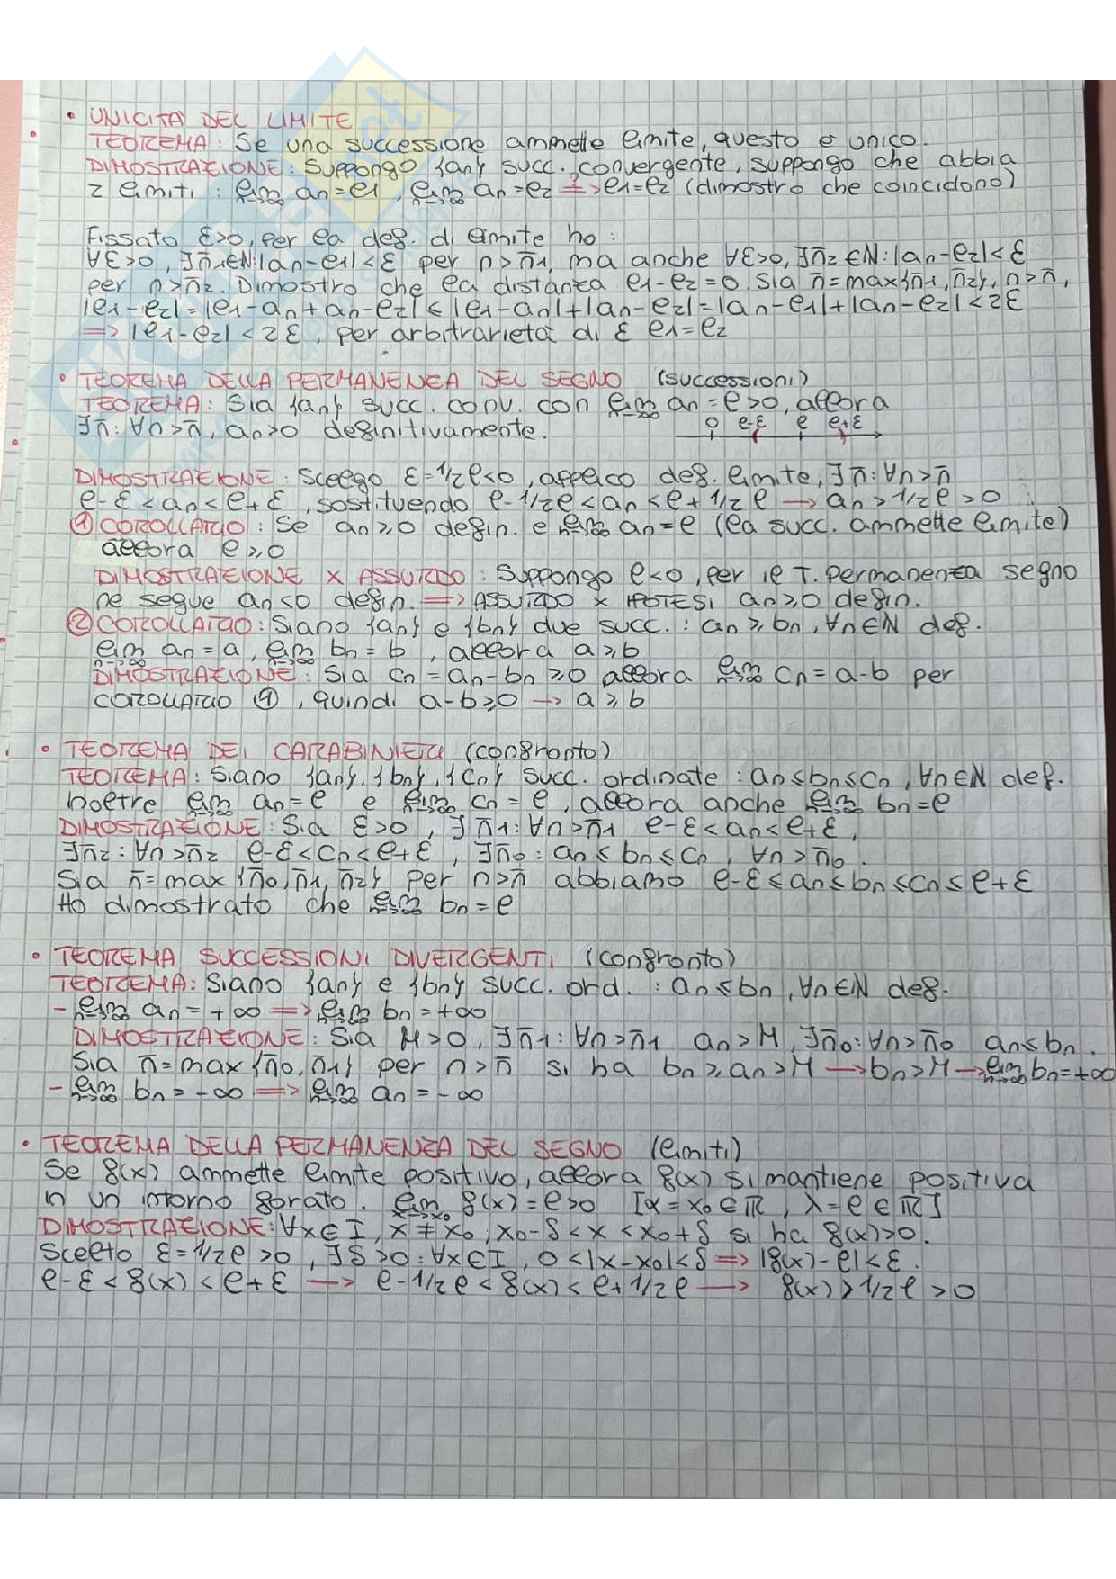 • UNICITA' DEL LIMITE
TEOREMA: Se una successione ammette limite, questo è unico.
DIMOSTRAZIONE: Suppongo {an} succ. convergente, suppongo che abbia
2 limiti: lim n→∞ an = l1, lim n→∞ an = l2 => l1=l2 (dimostro che coincidono)
Fissato ε>0, per la def. di limite ho:
∀ε>0, ∃n̄1∈N: |an-l1|<ε per n>n̄1, ma anche ∀ε>0, ∃n̄2∈N: |an-l2|<ε
per n>n̄2. Dimostro che la distanza l1-l2=0. Sia n̄=max{n̄1,n̄2}, n>n̄,
|l1-l2|=|l1-an+an-l2|≤|l1-an|+|an-l2|=|an-l1|+|an-l2|<2ε
=> |l1-l2|<2ε, per arbitrarietà di ε l1=l2
• TEOREMA DELLA PERMANENZA DEL SEGNO (successioni)
TEOREMA: Sia {an} succ. conv. con lim n→∞ an=l>0, allora
∃n̄: ∀n>n̄, an>0 definitivamente.
0 l-ε l l+ε
DIMOSTRAZIONE: Scelgo ε=1/2l<0, applico def. limite, ∃n̄: ∀n>n̄
l-ε<an<l+ε, sostituendo l-1/2l<an<l+1/2l → an>1/2l>0
① COROLLARIO: Se an≥0 defin. e lim n→∞ an=l (la succ. ammette limite)
allora l≥0
DIMOSTRAZIONE x ASSURDO: Suppongo l<0, per il T. permanenza segno
ne segue an<0 defin. => ASSURDO x IPOTESI an≥0 defin.
② COROLLARIO: Siano {an} e {bn} due succ.: an≥bn, ∀n∈N def.
lim n→∞ an=a, lim n→∞ bn=b, allora a≥b
DIMOSTRAZIONE: Sia cn=an-bn≥0 allora lim n→∞ cn=a-b per
COROLLARIO ①, quindi a-b≥0 → a≥b
• TEOREMA DEI CARABINIERI (confronto)
TEOREMA: Siano {an}, {bn}, {cn} succ. ordinate: an≤bn≤cn, ∀n∈N def.
Inoltre lim n→∞ an=l e lim n→∞ cn=l, allora anche lim n→∞ bn=l
DIMOSTRAZIONE: Sia ε>0, ∃n̄1: ∀n>n̄1 l-ε<an<l+ε,
∃n̄2: ∀n>n̄2 l-ε<cn<l+ε, ∃n̄0: an≤bn≤cn, ∀n>n̄0.
Sia n̄=max{n̄0,n̄1,n̄2} per n>n̄ abbiamo l-ε≤an≤bn≤cn≤l+ε
Ho dimostrato che lim n→∞ bn=l
• TEOREMA SUCCESSIONI DIVERGENTI (confronto)
TEOREMA: Siano {an} e {bn} succ. ord.: an≤bn, ∀n∈N def.
- lim n→∞ an=+∞ => lim n→∞ bn=+∞
DIMOSTRAZIONE: Sia M>0, ∃n̄1: ∀n>n̄1 an>M, ∃n̄0: ∀n>n̄0 an≤bn.
Sia n̄=max{n̄0,n̄1} per n>n̄ si ha bn≥an>M → bn>M → lim n→∞ bn=+∞
- lim n→∞ bn=-∞ => lim n→∞ an=-∞
• TEOREMA DELLA PERMANENZA DEL SEGNO (limiti)
Se f(x) ammette limite positivo, allora f(x) si mantiene positiva
in un intorno forato. lim x→x0 f(x)=l>0 [α=x0∈R, λ=l∈R]
DIMOSTRAZIONE: ∀x∈I, x≠x0, x0-δ<x<x0+δ si ha f(x)>0.
Scelto ε=1/2l>0, ∃δ>0: ∀x∈I, 0<|x-x0|<δ => |f(x)-l|<ε.
l-ε<f(x)<l+ε → l-1/2l<f(x)<l+1/2l → f(x)>1/2l>0